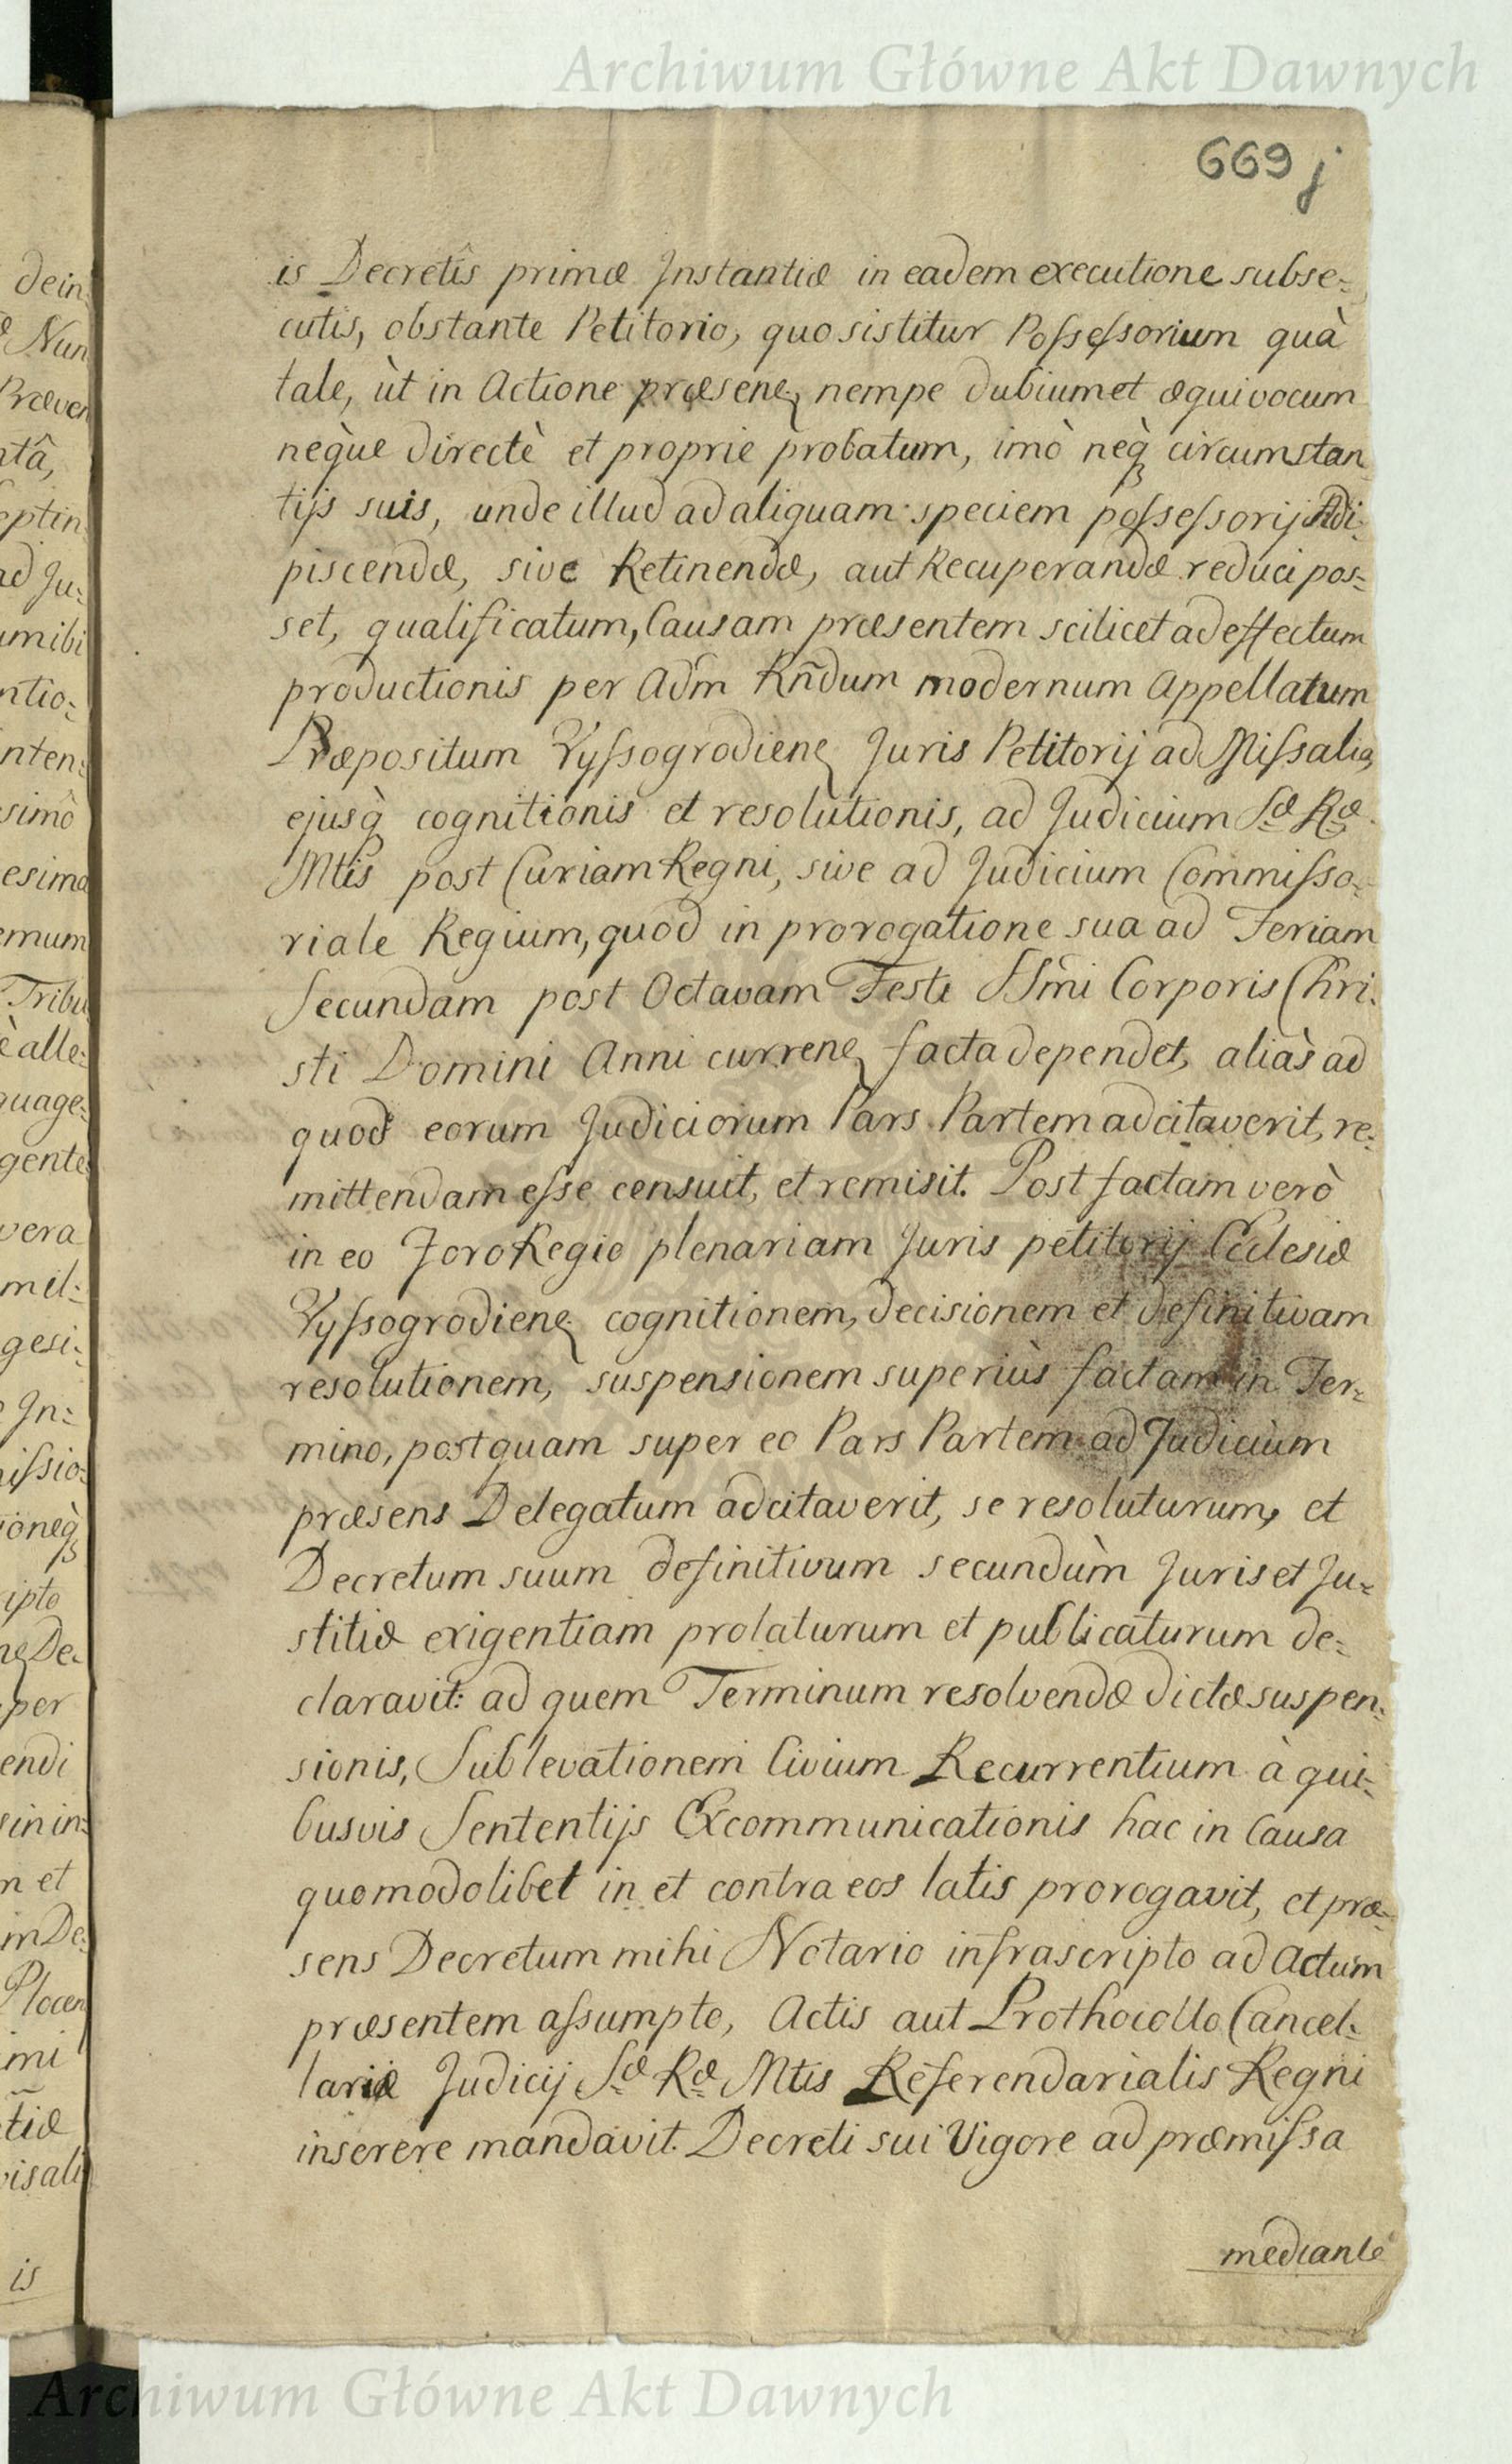 Archiwum Główne Akt Dawnych
669 j
is Decretîs primæ Instantiæ in eadem executione subse=
cutis, obstante Petitorio, quo sistitur Possessorium quà
tale, ùt in Actione præsenε, nempe dubium et æquivocum
neq̀ue directè et proprie probatum, imò neq̨ circumstan
tijs suis, unde illud ad aliquam speciem possessorij Adi=
piscendæ, sive Retinendæ, aut Recuperandæ reduci pos=
set, qualificatum, Causam præsentem scilicet ad effectum
productionis per Adm Rñdum modernum Appellatum
Præpositum Vyssogrodienε Juris Petitorij ad Missalia,
ejusq̀ cognitionis et resolutionis, ad Judicium Sæ Ræ
Mtis post Curiam Regni, sive ad Judicium Commisso=
riale Regium, quod in prorogatione sua ad Feriam
Secundam post Octavam Festi SSmi Corporis Chri=
sti Domini Anni currenε facta dependet, aliàs ad
quod eorum Judiciorum Pars Partem adcitaverit, re=
mittendam esse censuit, et remisit. Post factam verò
in eo Foro Regio plenariam Juris petitorij Ecclesiæ
Vyssogrodienε cognitionem, decisionem et definitivam
resolutionem, suspensionem superiùs factam in Ter=
mino, postquam super eo Pars Partem ad Judicium
præsens Delegatum adcitaverit, se resoluturum, et
Decretum suum definitivum secundùm Juris et Ju=
stitiæ exigentiam prolaturum et publicaturum de=
claravit: ad quem Terminum resolvendæ dictæ suspen=
sionis, Sublevationem Civium Recurrentium à qui=
busvis Sententijs Excommunicationis hac in Causa
quomodolibet in et contra eos latis prorogavit, et præ=
sens Decretum mihi Notario infrascripto ad Actum
præsentem assumpto, Actis aut Prothocollo Cancel=
lariæ Judicij Sæ Ræ Mtis Referendarialis Regni
inserere mandavit. Decreti sui Vigore ad præmissa
mediante
Archiwum Główne Akt Dawnych